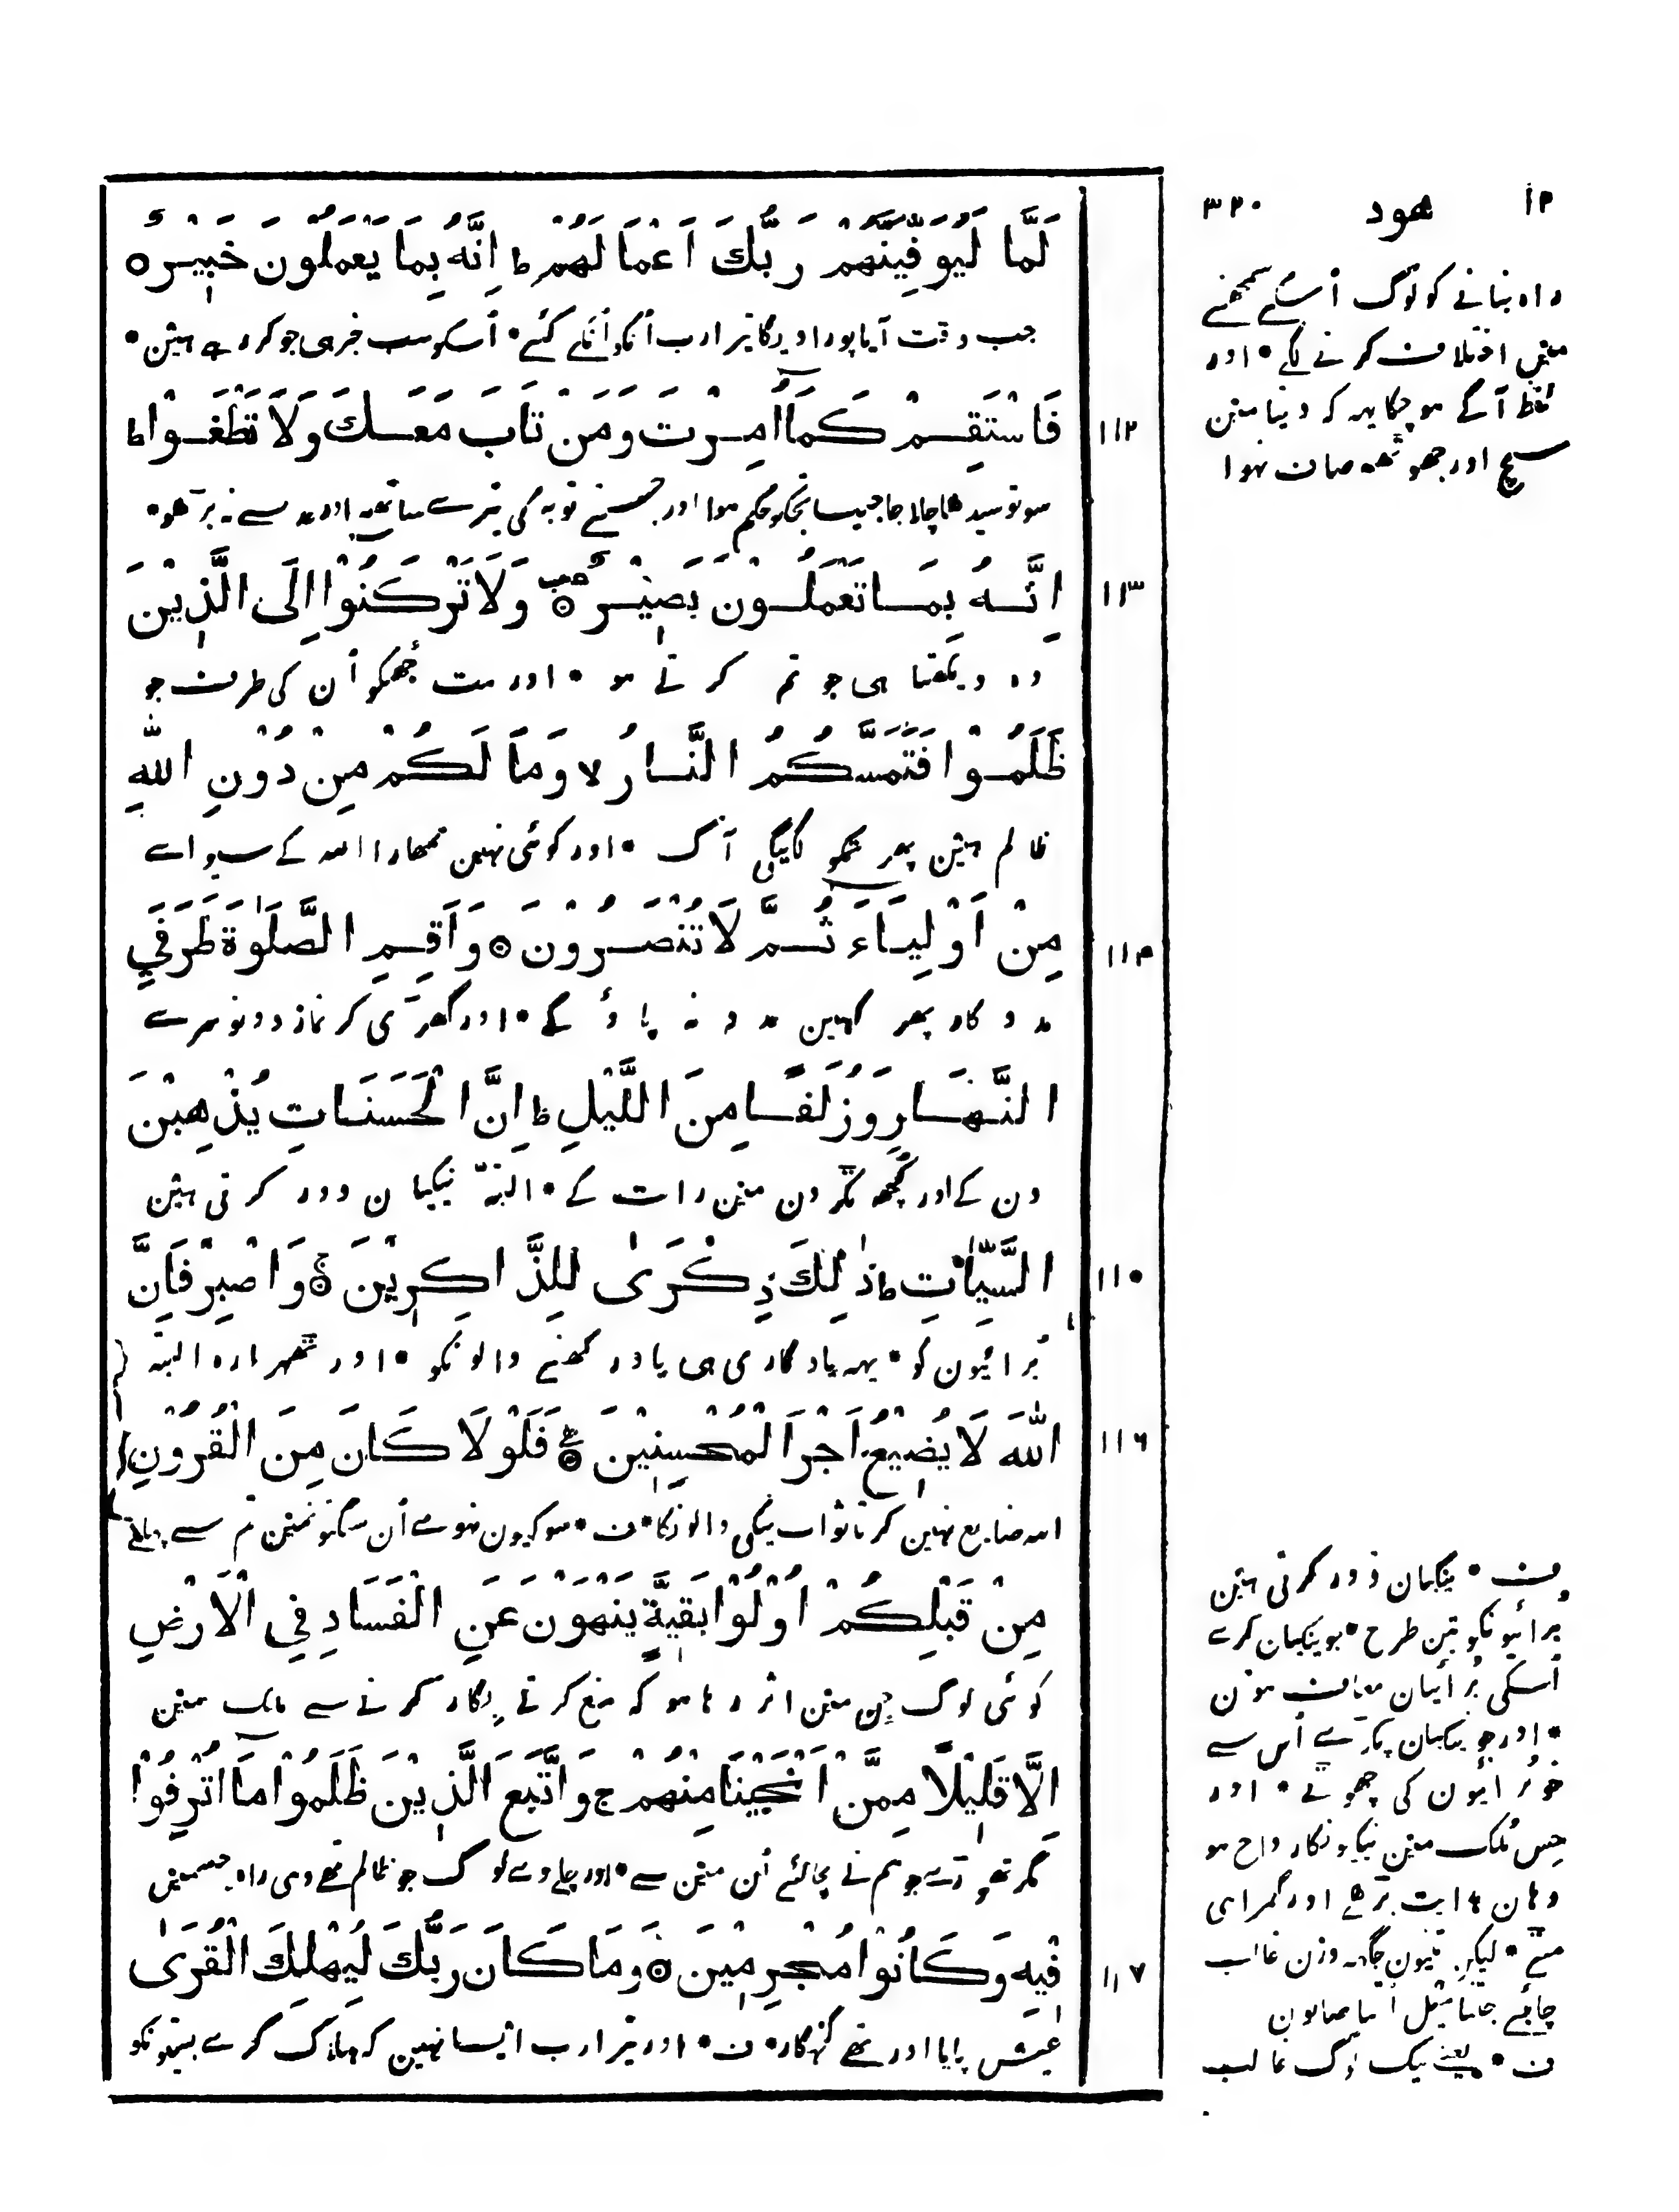 ١٢ هود ٣٢٠
لَمَّا لَيُوَفِّيَنَّهُمْ رَبُّكَ اَعْمَالَهُمْ ط اِنَّهُ بِمَا يَعْمَلُونَ خَبِيْرٌ ○
جب وقت آیا پورا دیگا تیرا رب اُنکو اُنکے کئے • اُسکو سب خبر ہی جو کر رہے ہین •
١١٢ فَاسْتَقِمْ كَمَا اُمِرْتَ وَمَنْ تَابَ مَعَكَ وَلَا تَطْغَوْا ط
سو تو سیدھا چلا جا جیسا تجکو حکم ہوا اور جسنے توبہ کی تیرے ساتھہ اور حد سے نہ بڑھو •
١١٣ اِنَّهُ بِمَا تَعْمَلُونَ بَصِيْرٌ ○ وَلَا تَرْكَنُوْا اِلَى الَّذِيْنَ
وہ دیکھتا ہی جو تم کرتے ہو • اور مت جُھکو اُن کی طرف جو
ظَلَمُوْا فَتَمَسَّكُمُ النَّارُ لا وَمَا لَكُمْ مِنْ دُوْنِ اللّٰهِ
ظالم ہین پھر تمکو لگیگی آگ • اور کوئی نہین تمھارا اللہ کے سواے
١١٤ مِنْ اَوْلِيَاءَ ثُمَّ لَا تُنْصَرُوْنَ ○ وَاَقِمِ الصَّلٰوةَ طَرَفَيِ
مددگار پھر کہین مدد نہ پاؤ گے • اور کھڑی کر نماز دونو سرے
النَّهَارِ وَزُلَفًا مِنَ اللَّيْلِ ط اِنَّ الْحَسَنَاتِ يُذْهِبْنَ
دن کے اور کُچھ ٹکڑون مین رات کے • البتّہ نیکیان دور کرتی ہین
١١٥ السَّيِّاٰتِ ط ذٰلِكَ ذِكْرَىٰ لِلذَّاكِرِيْنَ ○ وَاصْبِرْ فَاِنَّ
بُرائیون کو • یہہ یادگاری ہی یاد رکھنے والونکو • اور ٹھہرا رہ البتہ
١١٦ اللّٰهَ لَا يُضِيْعُ اَجْرَ الْمُحْسِنِيْنَ ○ فَلَوْلَا كَانَ مِنَ الْقُرُوْنِ
اللہ ضایع نہین کرتا ثواب نیکی والونکا • ف • سو کیون نہوے اُن سنگتونمین تم سے پہلے
مِنْ قَبْلِكُمْ اُوْلُوْا بَقِيَّةٍ يَنْهَوْنَ عَنِ الْفَسَادِ فِي الْاَرْضِ
کوئی لوگ جن مین اثر رہا ہو کہ منع کرتے بگاڑ کرنے سے ملک مین
اِلَّا قَلِيْلًا مِمَّنْ اَنْجَيْنَا مِنْهُمْ ج وَاتَّبَعَ الَّذِيْنَ ظَلَمُوْا مَا اُتْرِفُوْا
مگر تھوڑے جو ہم نے بچا لئے اُن مین سے • اور چلے وے لوگ جو ظالم تھے وہی راہ جسمین
١١٧ فِيْهِ وَكَانُوْا مُجْرِمِيْنَ ○ وَمَا كَانَ رَبُّكَ لِيُهْلِكَ الْقُرَىٰ
عیش پایا اور تھے گنہگار • ف • اور تیرا رب ایسا نہین کہ ہلاک کرے بستیونکو
راہ بتانے کو لوگ اُسکے سمجھنے
مین اختلاف کرنے لگے • اور
لفظ آگے ہو چکا یہہ کہ دنیا مین
سچ اور جھوٹھہ صاف نہوا
ف • نیکیان دور کرتی ہین
برائیونکو تین طرح • جو نیکیان کرے
اُسکی بُرائیان معاف ہون
• اور جو نیکیان پکڑے اُس سے
خو برائیون کی چھوٹے • اور
جس مُلک مین نیکیونکا رواج ہو
وہان ہدایت بڑھے اور گمراہی
مٹے • لیکن تینون جگہہ وزن غالب
چاہئے جتنا میل اُتنا صابون
ف • یعنے نیک لوگ غالب